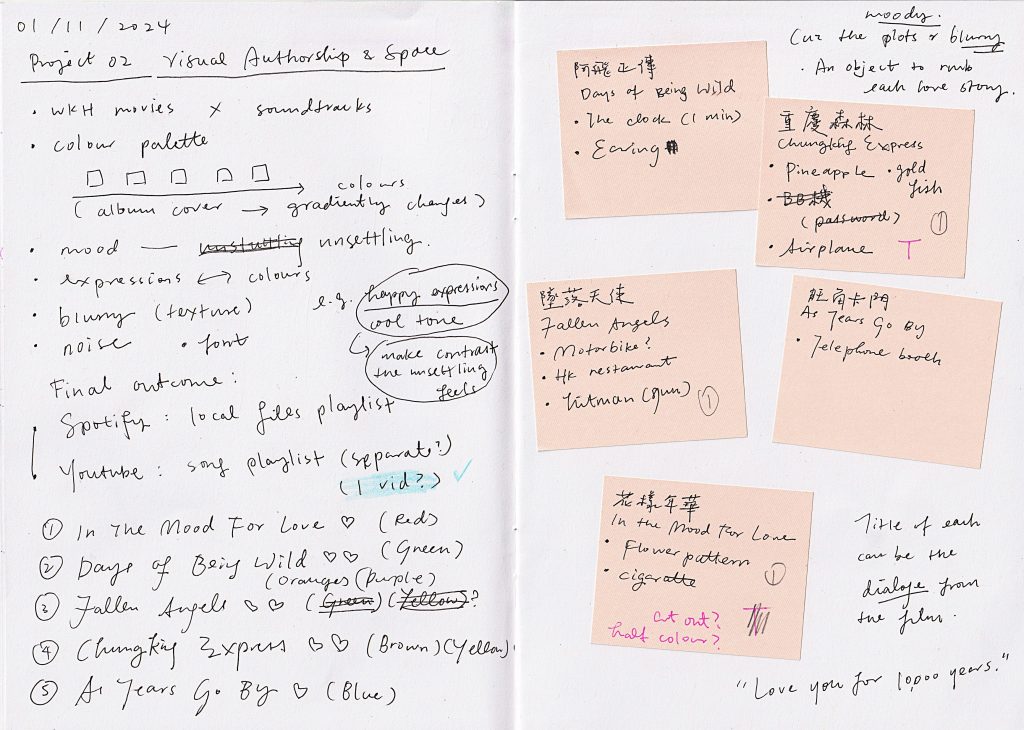 01 / 11 / 2024
Project 02 Visual Authorship & Space
• WKH movies × soundtracks
• colour palette
colours
(album cover → gradiently changes)
• mood — unsettling.
• expressions ↔ colours
• blurry (texture)
e.g. happy expressions
cool tone
• noise • font
make contrast
the unsettling
feels
Final outcome :
Spotify : local files playlist
Youtube : song playlist (separate?)
(1 vid?) ✓
① In The Mood For Love ♡ (Red)
② Days of Being Wild ♡♡ (Green)
(Oranges (Purple)
③ Fallen Angels ♡♡ (Green) (Yellow)?
④ Chungking Express ♡♡ (Brown) (Yellow)
⑤ As Tears Go By ♡ (Blue)
moody.
Cuz the plots r blurry
• An object to rmb
each love story.
阿飛正傳
Days of Being Wild
• The clock (1 min)
• Earing
重慶森林
Chungking Express
• Pineapple • gold
fish
• BB機
(password) ①
• Airplane T
墮落天使
Fallen Angels
• Motorbike?
• HK restaurant
• Hitman (gun) ①
旺角卡門
As Tears Go By
• Telephone booth
花樣年華
In the Mood For Love
• Flower pattern
• cigarette ①
cut out?
half colour?
Title of each
can be the
dialoge from
the film.
"Love you for 10,000 years."